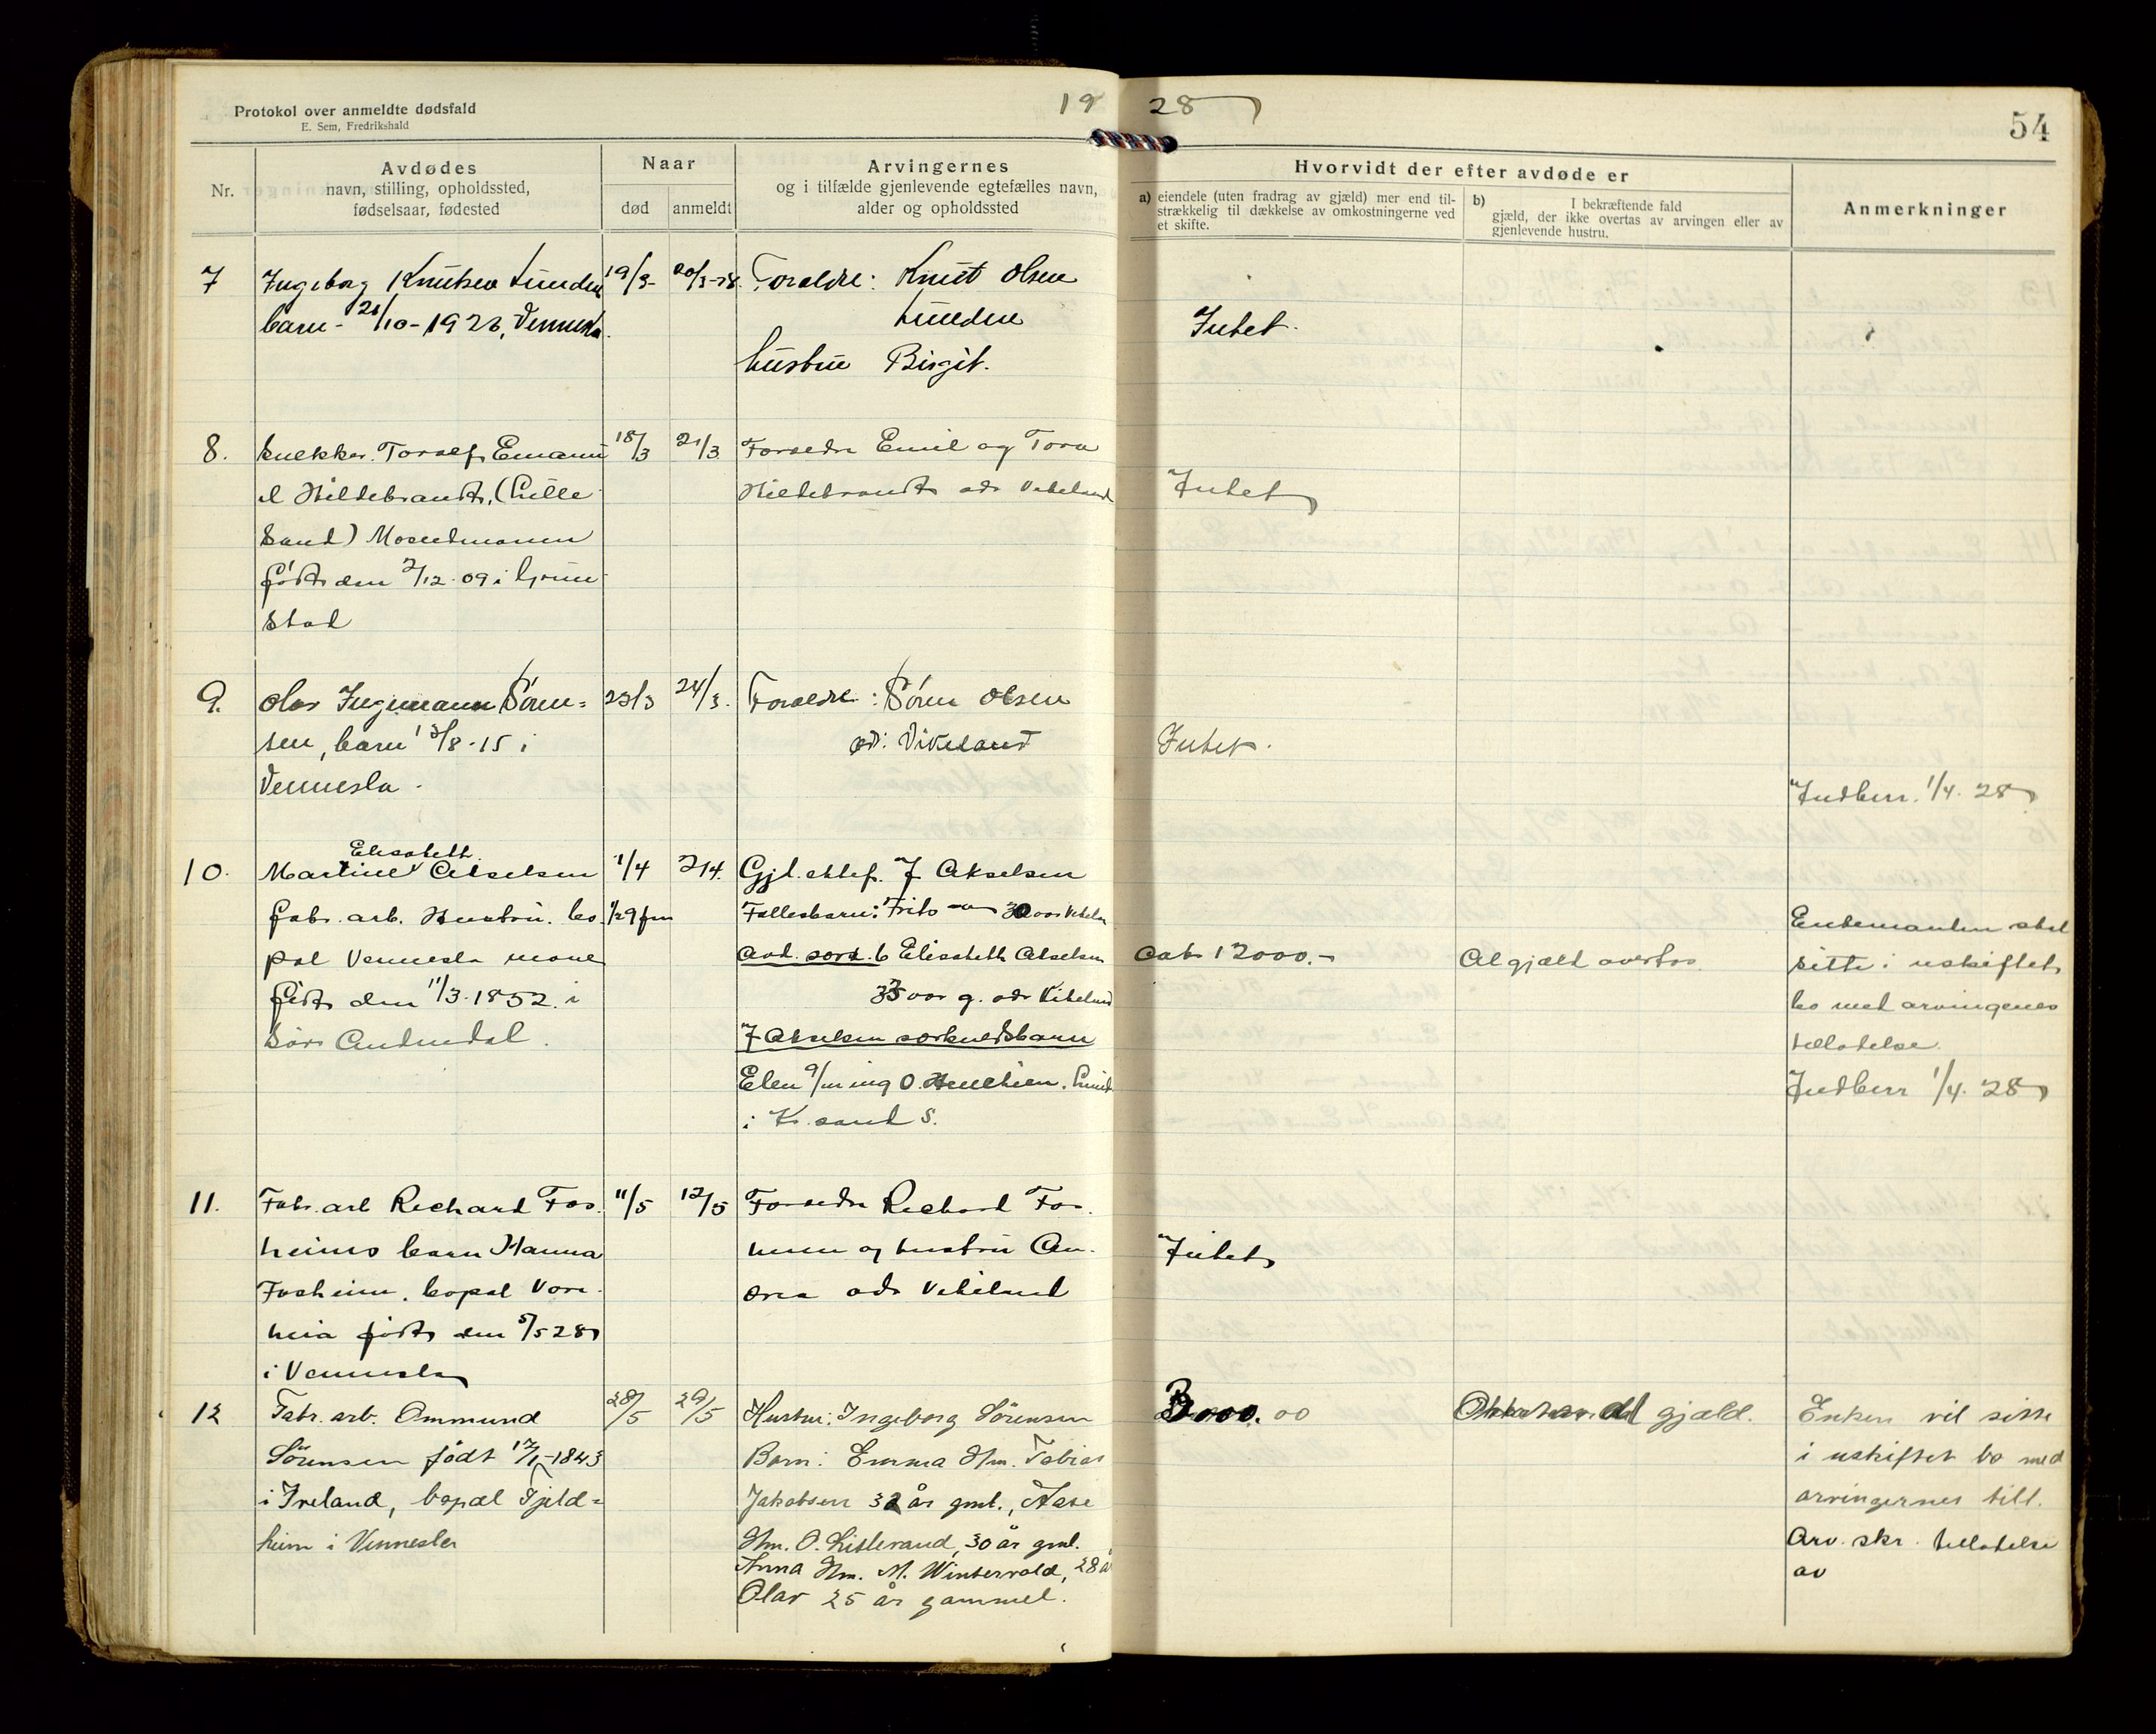 Protokol over anmeldte dødsfald
E. Sem, Fredrikshald
19 28
54
Nr.
Avdødes
navn, stilling, opholdssted,
fødselsaar, fødested
Naar
død
anmeldt
Arvingernes
og i tilfælde gjenlevende egtefælles navn,
alder og opholdssted
Hvorvidt der efter avdøde er
a) eiendele (uten fradrag av gjæld) mer end til-
strækkelig til dækkelse av omkostningerne ved
et skifte.
b) I bekræftende fald
gjæld, der ikke overtas av arvingen eller av
gjenlevende hustru.
Anmerkninger
7
Ingeborg Knutsen Lunden
barn - 21/10 - 1926, Vennesla.
19/3-
20/3-28.
Foraldre: Knut Olsen
Lunden
hustru Birgit.
Intet.
8.
Snekker Toralf Emanu
el Hildebrandt, (Lille
Sand) Moseidmoen
født den 2/12-09 i Grim
stad
18/3
21/3
Foreldre Emil og Tora
Hildebrandt adr Vikeland
Intet
9.
Olav Ingemann Søren=
sen, barn 13/8-15 i
Vennesla.
23/3
24/3.
Foraldre: Søren Olsen
adr: Vikeland
Intet.
Indberr. 1/4. 28
10.
Elisabeth
Martine Akselsen
fabr. arb. Hustru. bo
pæl Vennesla mone
født den 11/3-1852. i
Søre Audnedal.
1/4
1/2 9 fm
2/4.
Gjl. ektef. J Akselsen
Fællesbarn: Frits 30 aar Vikelan
Avd. særk. b Elisabeth Akselsen
35 aar g. adr Vikeland
J Akselsen særkuldsbarn
Elen g/m ing O.
i Kr.sand S.
Cab 12000.-
Al gjæld overtas.
Enkemanden skal
sitte i uskiftet
bo med arvingenes
tillatelse.
Indberr 1/4. 28
11.
Fabr. arb Richard Fos
heims barn Hanna
Fosheim, bopæl Vore
heia født den 5/5 28
i Vennesla
11/5
12/5
Foreldre Richard Fos
heim og hustru An
drea adr Vikeland
Intet
12
Fabr. arb. Ommund
Sörensen födt 17/1-1843
i Iveland, bopæl Fjeld=
heim i Vennesla
28/5
29/5
Hustru: Ingeborg Sörensen
Barn: Emma Hm. Tobias
Jakobsen 32 år gml., Aase
Hm. O. Lillevand, 30 år gml.
Anna Hm. M. Wintervold, 28 å
Olav 25 år gammel.
3000.00
gjæld.
Enken vil sitte
i uskiftet bo med
arvingernes till.
Arv. skr. tillatelse
av